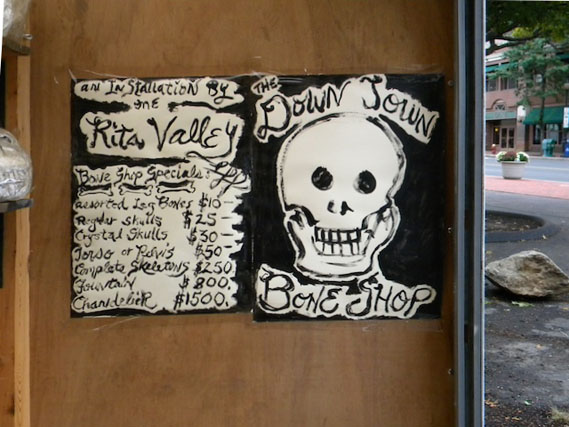 an InStallation By
one
Rita Valley
Bone Shop Specials:
assorted Leg Bones $10—
Regular Skulls $25—
Crystal Skulls $30—
Torso or Pelvis $50—
Complete Skeletons $250.
Fountain $800.
Chandelier $1500.
THE
DOWN TOWN
BONE SHOP